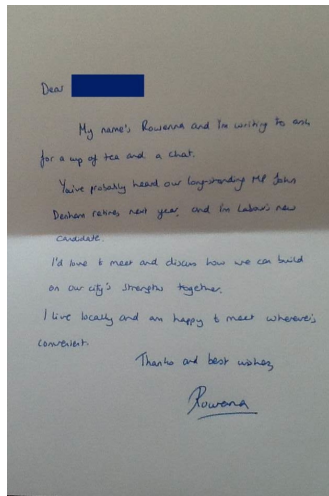 Dear
My name's Rowenna and I'm writing to ask
for a cup of tea and a chat.
You've probably heard our longstanding MP John
Denham retires next year, and I'm Labour's new
candidate.
I'd love to meet and discuss how we can build
on our city's strengths together.
I live locally and am happy to meet wherever's
convenient.
Thanks and best wishes,
Rowenna